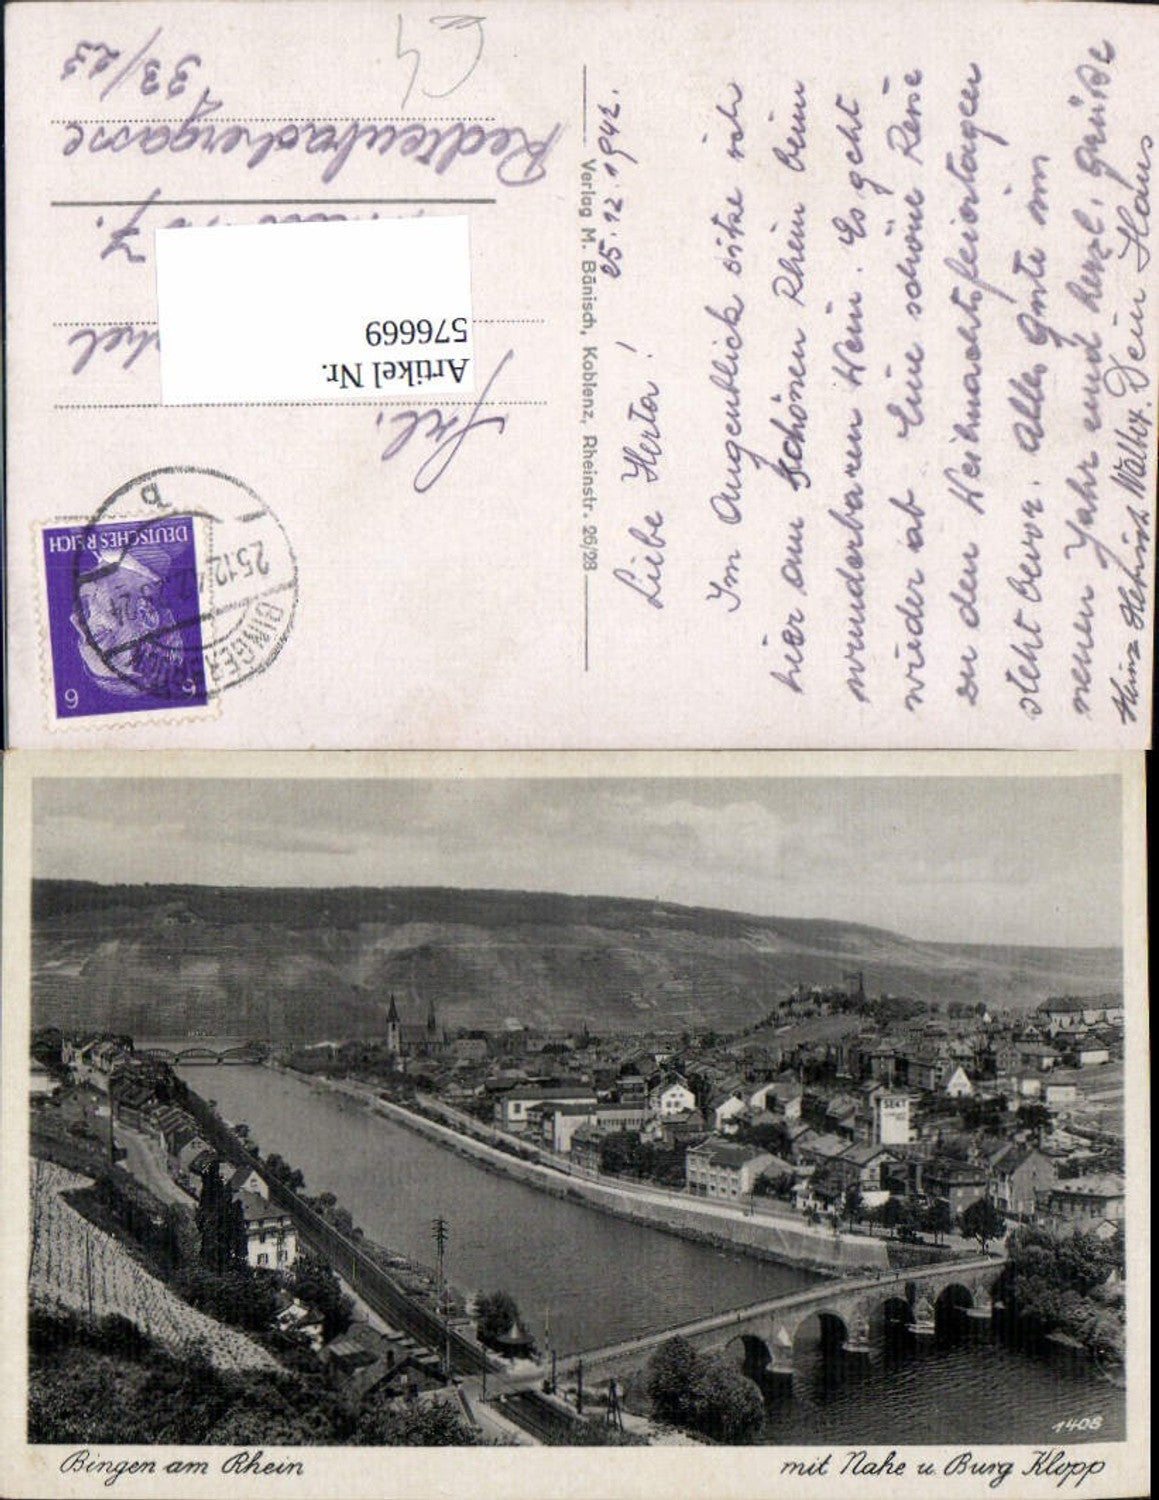 25.12.1942.
Liebe Herta!
Im Augenblick sitze ich
hier am schönen Rhein beim
wunderbaren Wein. Es geht
wieder ab. Eine schöne Reise
zu den Weihnachtsfeiertagen
steht bevor. Alles Gute im
neuen Jahr und herzl. Grüße
Dein Hans
Heinz Walter.
Verlag M. Bänisch, Koblenz, Rheinstr. 26/28
DEUTSCHES REICH
6 6
BINGERBRÜCK
25.12.42
a
Frl.
Artikel Nr.
576669
7.
Redtenbachergasse
33/23
SEKT
1408
Bingen am Rhein
mit Nahe u. Burg Klopp